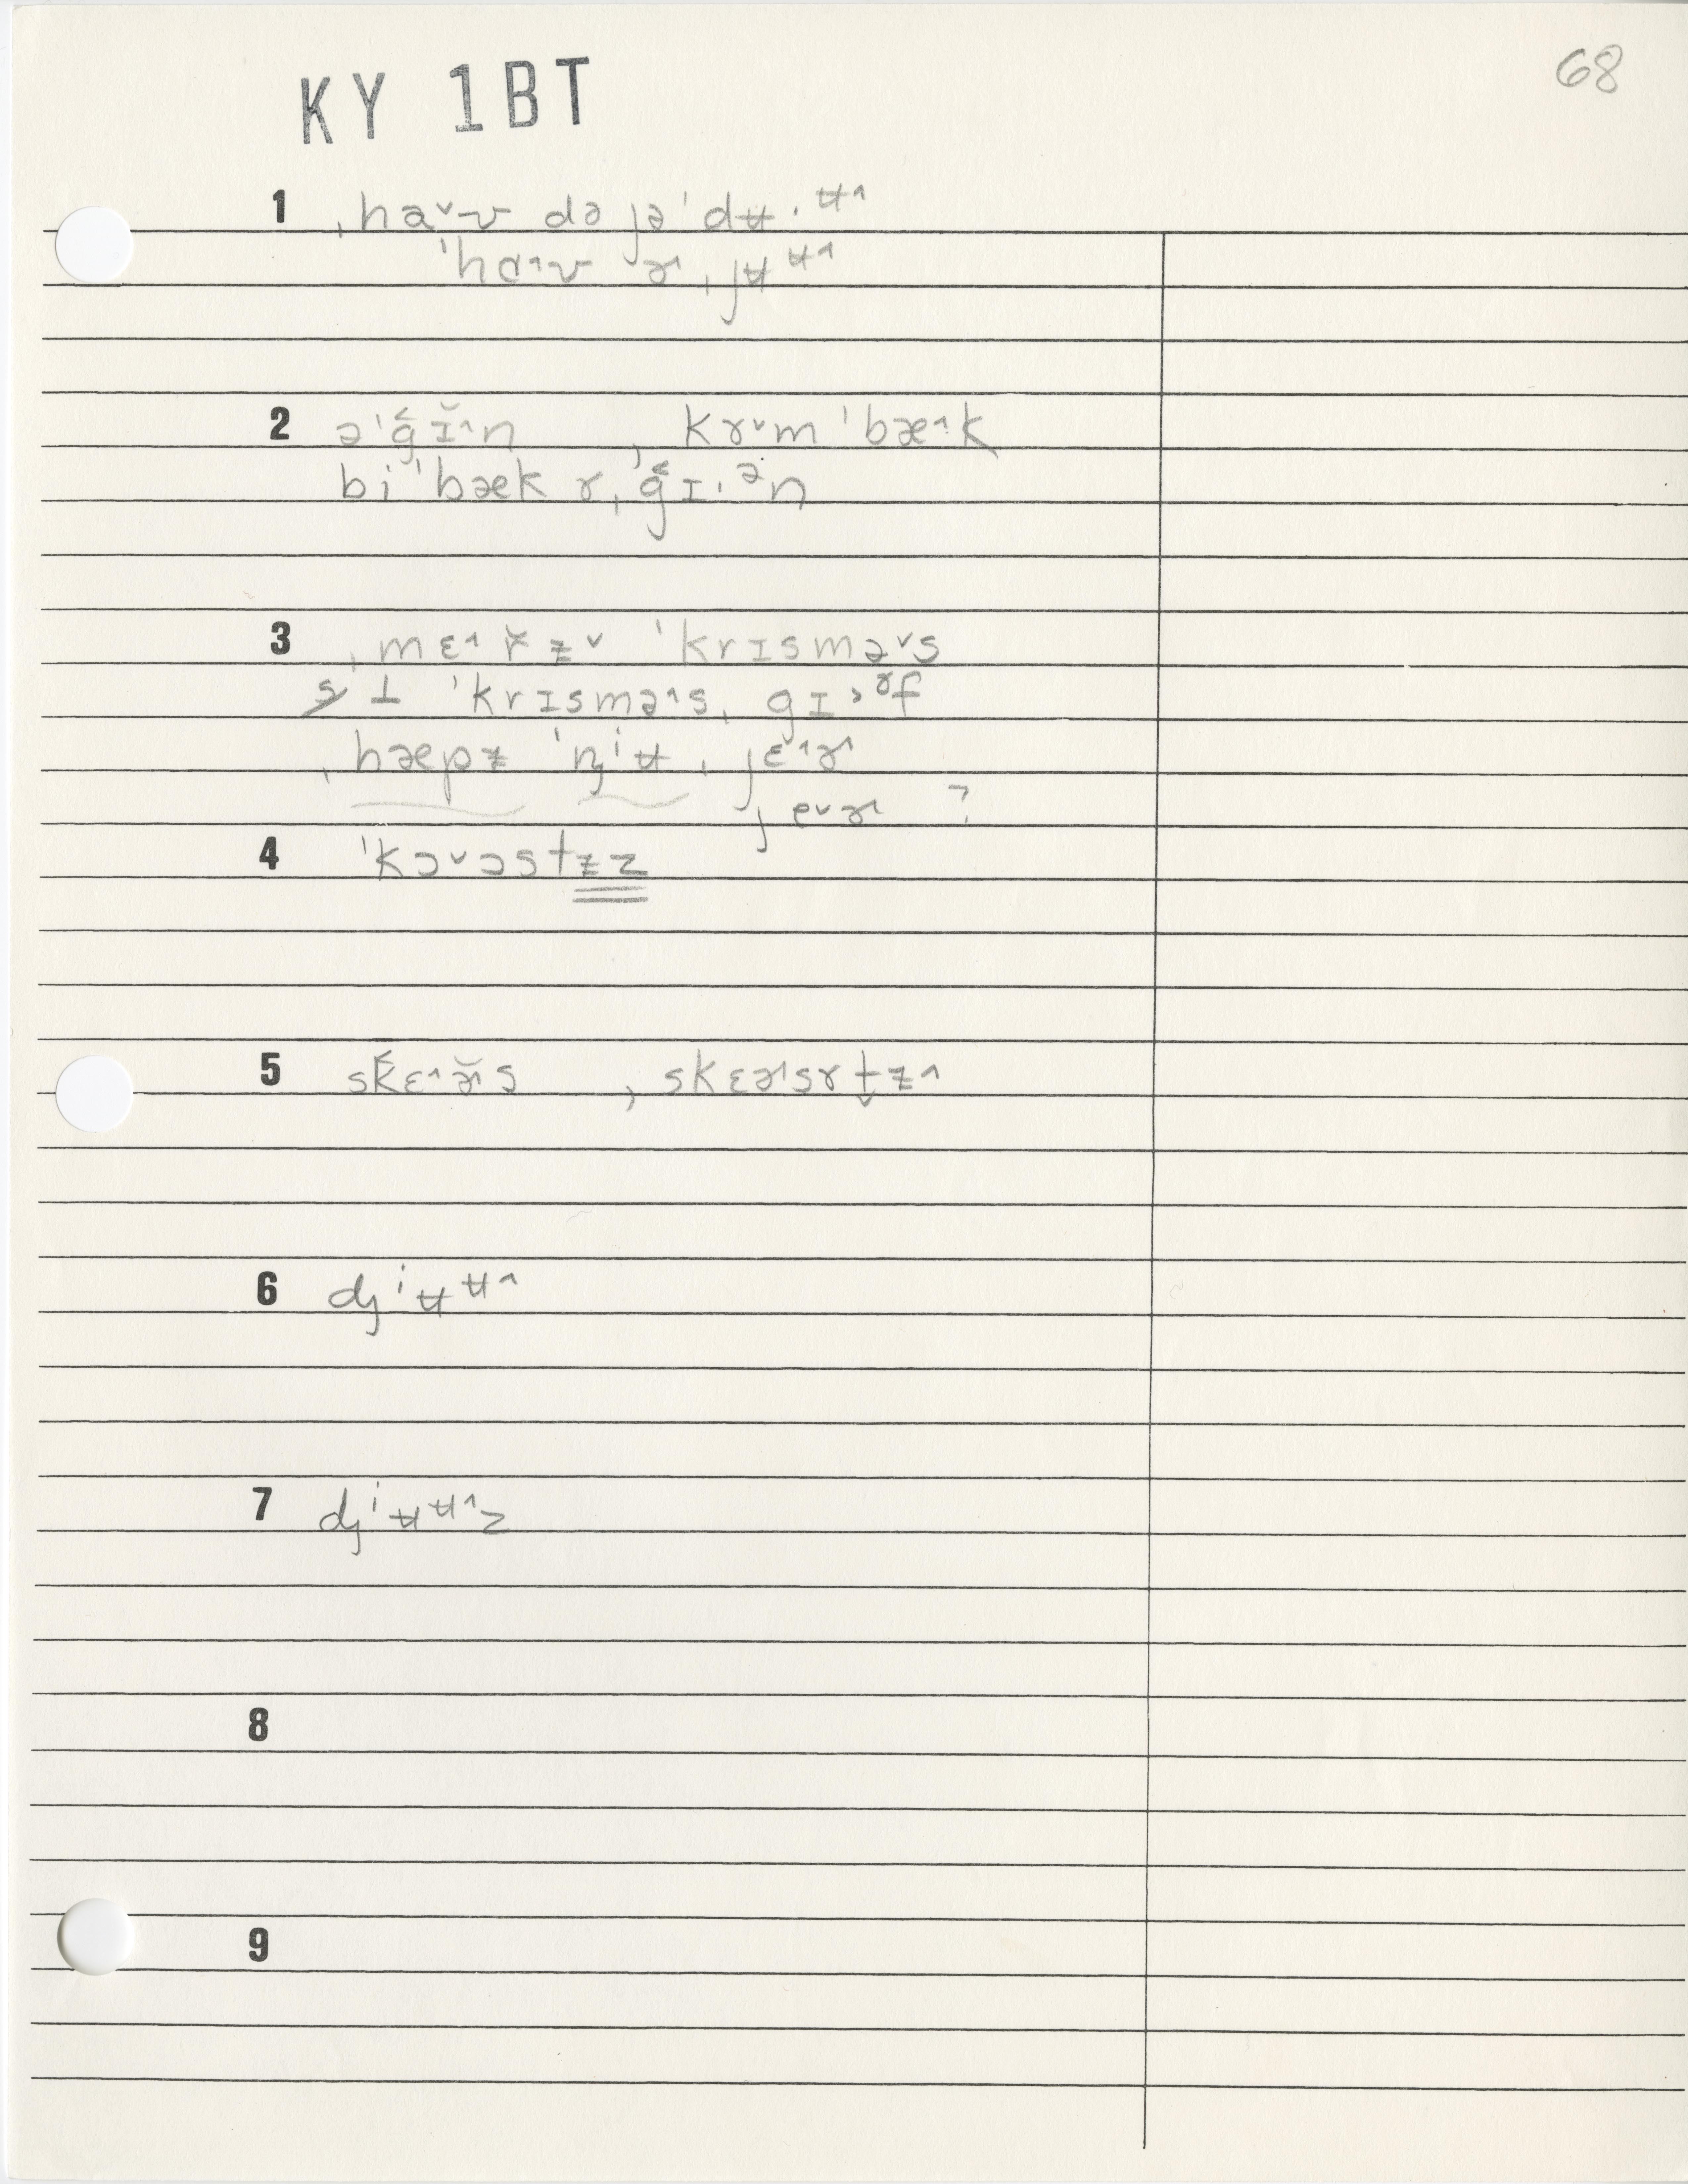 KY 1BT
68
1 ˌha˅ʊ də jə ˈdʉ· ʉ˄
ˈhɑ˄ʊ ɚ ˌjʉ ʉ˄
2 əˈg̑ɪ̆˄n , kɤ˅m ˈbæ˄k
bi ˈbæk ɤˌg̑ɪ· ən
3 ˌmɛ˄ɤ̆ᵻ˅ ˈkrɪsmə˅s
ˈkrɪsmə˄s ˌgɪ˃ɤf
ˌhæpᵻ ˈnjiʉ ˌjɛ˄ɚ
je˅ɚ ?
4 ˈkɔ˅ɔstᵻz
5 skɛ˄ɚ̆s , skɛɚsɤt̬ᵻ˄
6 djiʉ ʉ˄
7 djiʉ ʉ˄z
8
9